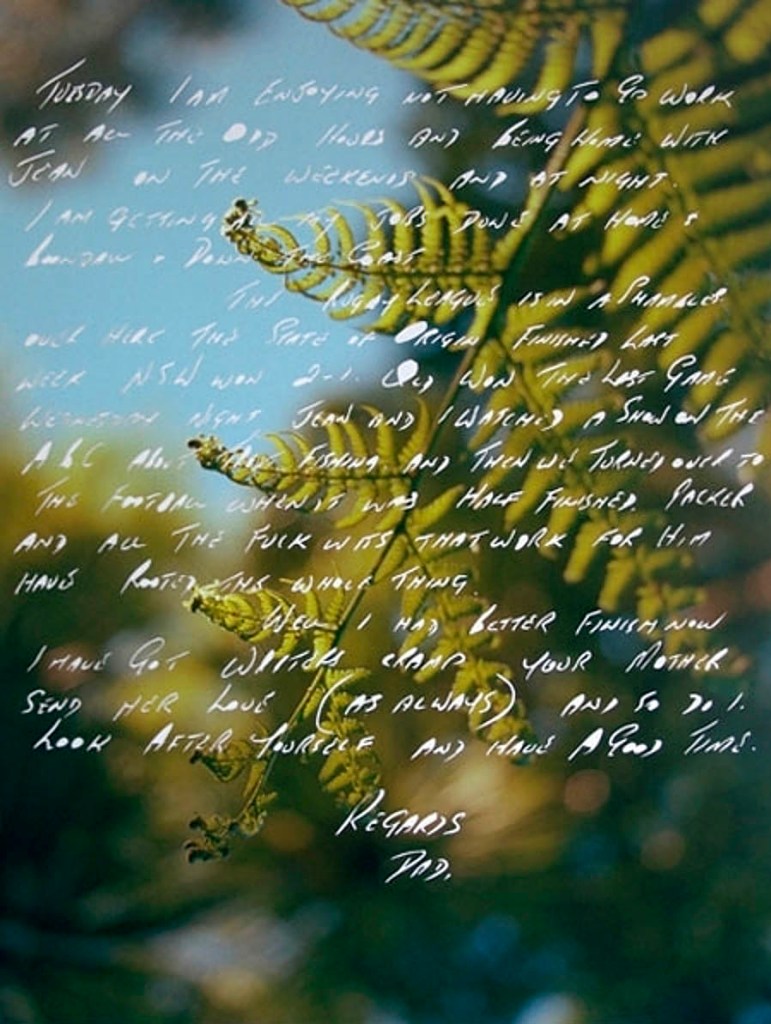 TUESDAY I AM ENJOYING NOT HAVING TO GO WORK
AT ALL THE ODD HOURS AND BEING HOME WITH
JEAN ON THE WEEKENDS AND AT NIGHT.
I AM GETTING THE JOBS DONE AT HOME &
& DOWN THE COAST
THE RUGBY LEAGUE IS IN A SHAMBLES
OVER HERE THE STATE OF ORIGIN FINISHED LAST
WEEK NSW WON 2-1. QLD WON THE LAST GAME
WEDNESDAY NIGHT JEAN AND I WATCHED A SHOW ON THE
ABC ABOUT TROUT FISHING AND THEN WE TURNED OVER TO
THE FOOTBALL WHEN IT WAS HALF FINISHED. PACKER
AND ALL THE FUCK WITS THAT WORK FOR HIM
HAVE ROOTED THE WHOLE THING.
WELL I HAD BETTER FINISH NOW
I HAVE GOT WRITERS CRAMP YOUR MOTHER
SEND HER LOVE (AS ALWAYS) AND SO DO I.
LOOK AFTER YOURSELF AND HAVE A GOOD TIME.
REGARDS
DAD.